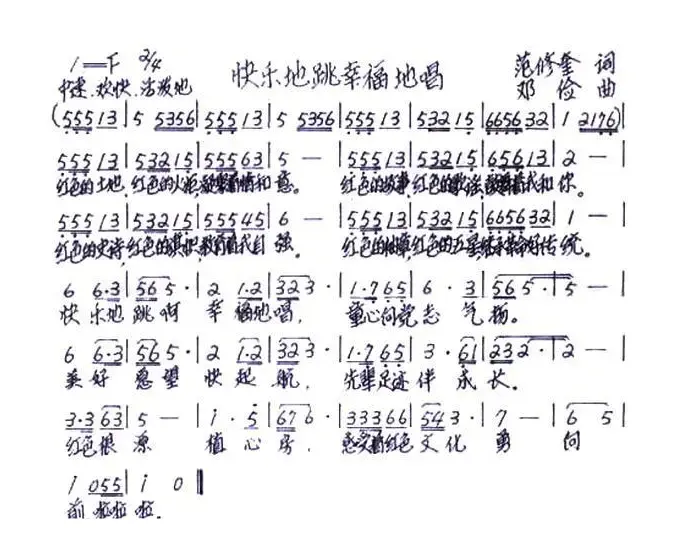 1=F 2/4 快乐地跳幸福地唱 范修奎 词
中速.欢快.活泼地 邓俭 曲
(555 13|5 5356|555 13|5 5356|555 13|5321 15|6656 32|1 2176)|
555 13|5321 15|555 63|5 —|555 13|5321 15|656 13|2 —|
红色的土地,红色的火炬 情和意。 红色的故事,红色的 我和你。
555 13|5321 15|555 45|6 —|555 13|5321 15|6656 32|1 —|
红色的史诗,红色的旗帜 教育 代自强。 红色的 红色的五星 传统。
6 6·3|56 5·|2 1·2|323·|1·7 65|6·3|565·|5 —|
快乐地跳啊 幸福地唱, 童心向党志气扬。
6 6·3|56 5·|2 1·2|323·|1·7 65|3·61|232·|2 —|
美好愿望快起航, 先辈足迹伴成长。
3·3 63|5 —|1·5|676·|333 66|543·|7 —|6 5|
红色根源 植心房, 红色文化勇向
1 055|1 0‖
前 啦啦啦.